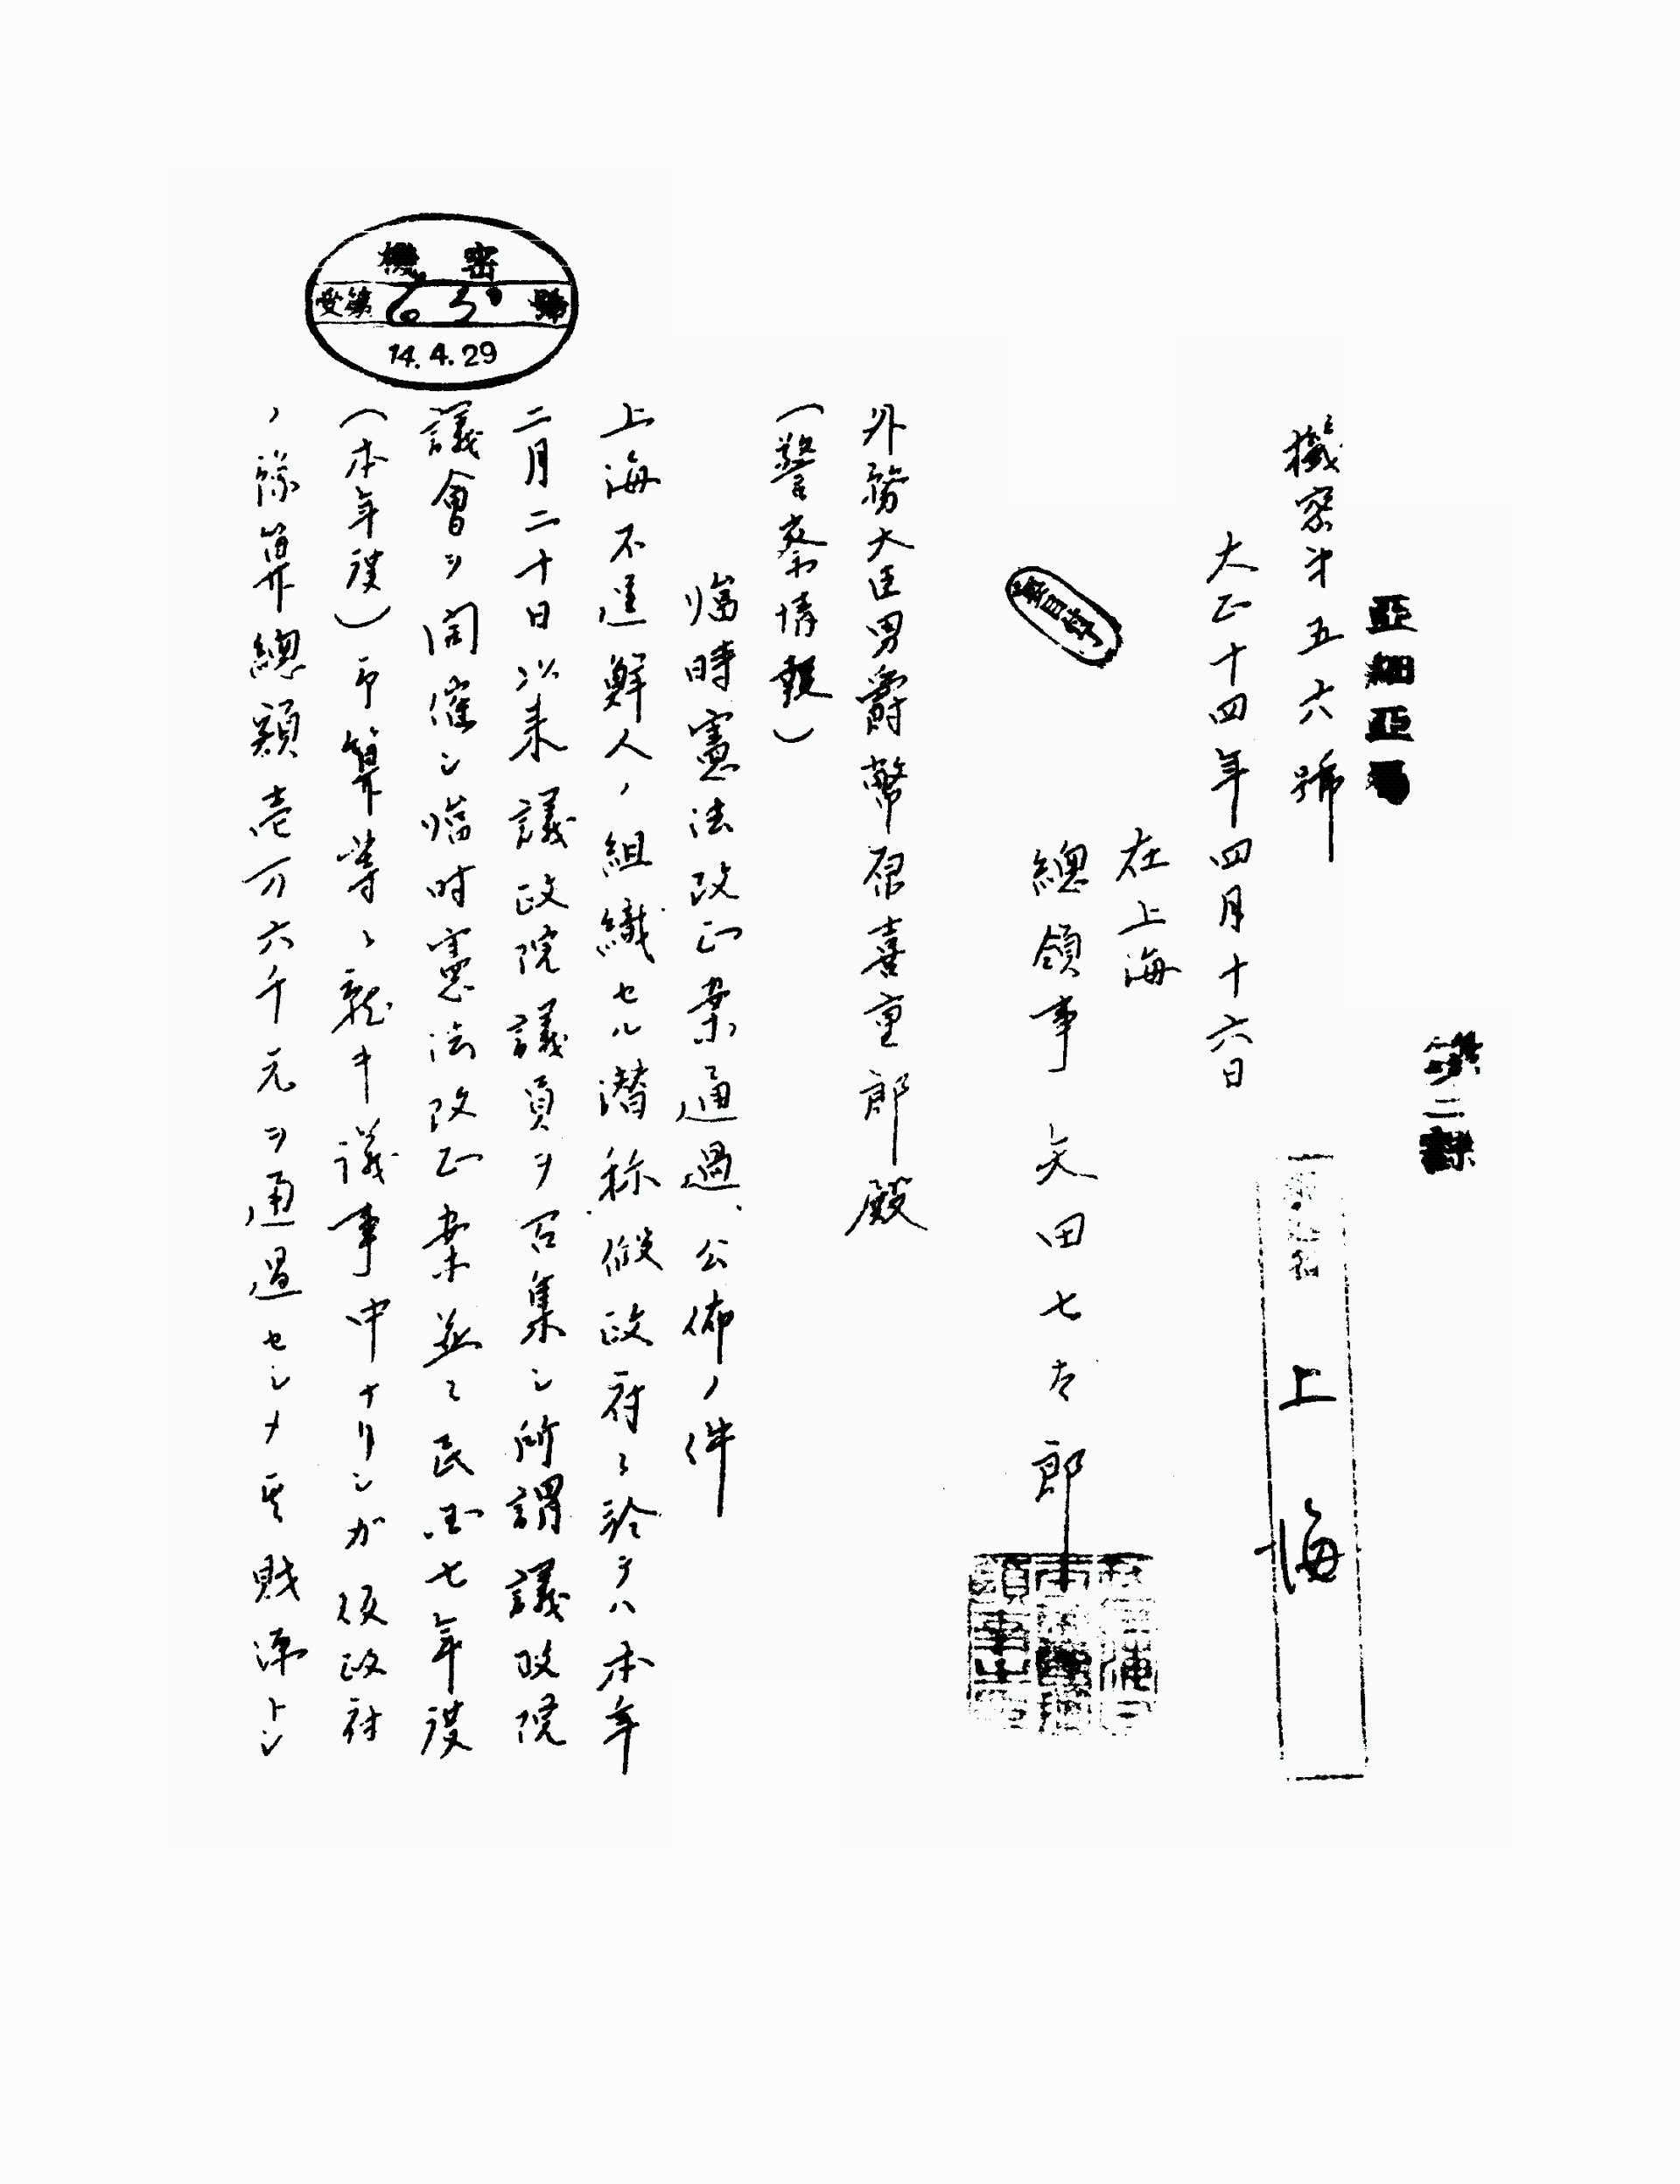 第二課
亞細亞局
上海
機密第五六號
大正十四年四月十六日
在上海
總領事 矢田七太郎
外務大臣男爵幣原喜重郎殿
(警察情報)
臨時憲法改正案通過、公佈ノ件
上海不逞鮮人ノ組織セル潜称仮政府ニ於テハ本年
二月二十日以来議政院議員ヲ召集シ所謂議政院
議會ヲ開催シ臨时憲法改正案並ニ民国七年度
(本年度)予算等ニ就キ議事中ナリシガ仮政府
ノ豫算總額壱万六千元ヲ通過セシメ其財源トシ
機密
受第 65 號
14.4.29